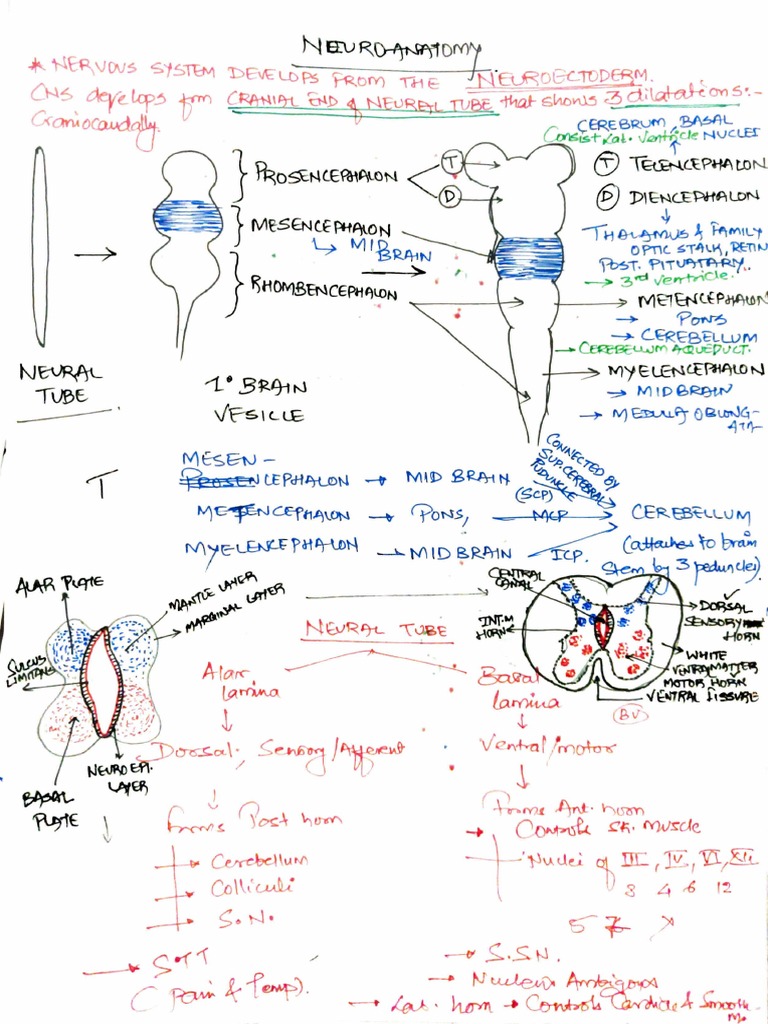 NEURO-ANATOMY
* NERVOUS SYSTEM DEVELOPS FROM THE NEUROECTODERM.
CNS develops frm CRANIAL END of NEURAL TUBE that shows 3 dilatations:-
Craniocaudally.
CEREBRUM, BASAL
Consist Lat. Ventricle NUCLEI
T
T TELENCEPHALON
PROSENCEPHALON
D
D DIENCEPHALON
MESENCEPHALON
MID
BRAIN
THALAMUS & FAMILY
OPTIC STALK, RETIN
POST. PITUATARY..
→ 3rd Ventricle.
RHOMBENCEPHALON
METENCEPHALON
→ PONS
→ CEREBELLUM
→ CEREBELLUM AQUEDUCT.
MYELENCEPHALON
→ MIDBRAIN
→ MEDULLA OBLONG-
ATA
NEURAL
TUBE
1° BRAIN
VESICLE
T
MESEN-
PROSENCEPHALON → MID BRAIN
CONNECTED BY
SUP. CEREBRAL
PUDUNCLE
(SCP)
METENCEPHALON → PONS, MCP → CEREBELLUM
MYELENCEPHALON → MIDBRAIN ICP.
(attaches to brain
stem by 3 peduncles)
ALAR PLATE
MANTLE LAYER
MARGINAL LAYER
SULCUS
LIMITANS
NEUROEPI.
LAYER
BASAL
PLATE
CENTRAL
CANAL
INT.M
HORN
DORSAL
SENSORY
HORN
WHITE
MATTER
VENTRAL
MOTOR HORN
VENTRAL FISSURE
BV
NEURAL TUBE
Alar
lamina
Basal
lamina
Dorsal, Sensory/Afferent
Ventral/motor
Forms Post horn
→ Cerebellum
→ Colliculi
→ S.N.
→ STT
(Pain & Temp).
Forms Ant. horn
→ Controls Sk. Muscle
Nuclei of III, IV, VI, XII
3 4 6 12
5 7 X
→ S.S.N.
→ Nucleus Ambigous
→ Lat. horn → Controls Cardiac & Smooth
m.